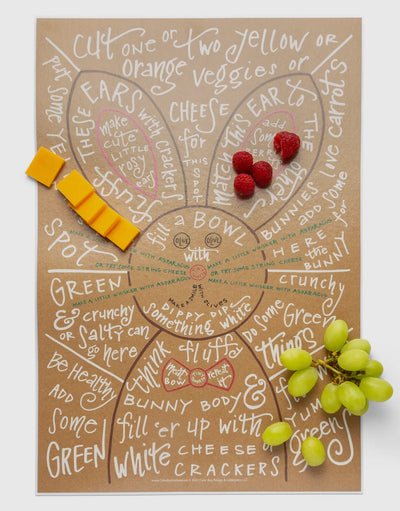 cut one or two yellow or
orange veggies or
put some ye
CHEESE
for
THIS
these EARS with crackers
make
cute
LITTLE
rosy
fluffy
match this EAR to the
add
some
crackers
BUNNIES love carrots
add some
HERE for
the
BUNNY
SPOT
fill a BOWL
OLIVE
OLIVE
with
MAKE A LITTLE WHISKER WITH ASPARAGUS
OR TRY SOME STRING CHEESE
MAKE A LITTLE WHISKER WITH ASPARAGUS
MAKE A LITTLE WHISKER WITH ASPARAGUS
OR TRY SOME STRING CHEESE
MAKE A LITTLE WHISKER WITH ASPARAGUS
MAKE A SMILE WITH OLIVES
DIPPY DIP
something white
GREEN
& crunchy
or salty can
go here
crunchy
Do some
Green
things
Be Healthy
ADD
some
GREEN
think fluffy
MEATY
BOW
repeat
it
BUNNY BODY &
fill 'er up with
white CHEESE
CRACKERS
YUM
Greeny